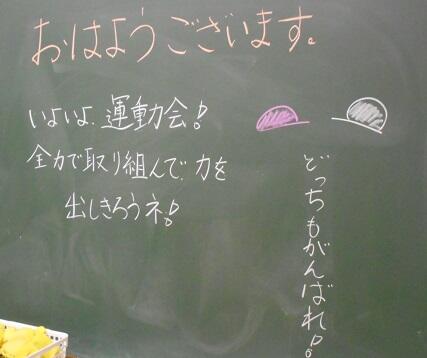 おはようございます。
いよいよ、運動会!
全力で取り組んで、力を
出しきろうネ!
どっちもがんばれ!